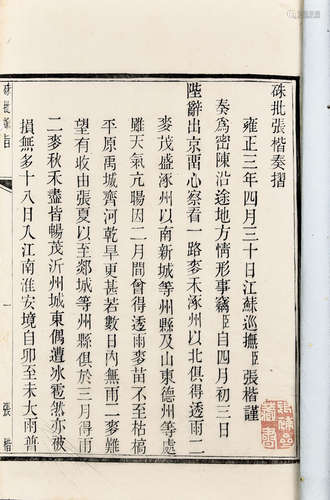 硃批張楷奏摺
雍正三年四月三十日江蘇巡撫臣張楷謹
奏爲密陳沿途地方情形事竊臣自四月初三日
陛辭出京畱心察看一路麥禾涿州以北俱得透雨二
麥茂盛涿州以南新城等州縣及山東德州等處
雖天氣亢暘因二月間曾得透雨麥苗不至枯槁
平原禹城齊河乾旱更甚若數日內無雨二麥難
望有收由張夏以至郯城等州縣俱於三月得雨
二麥秋禾盡皆暢茂沂州城東偶遭冰雹然亦被
損無多十八日入江南淮安境自卯至未大雨普
硃批諭旨
一
張楷